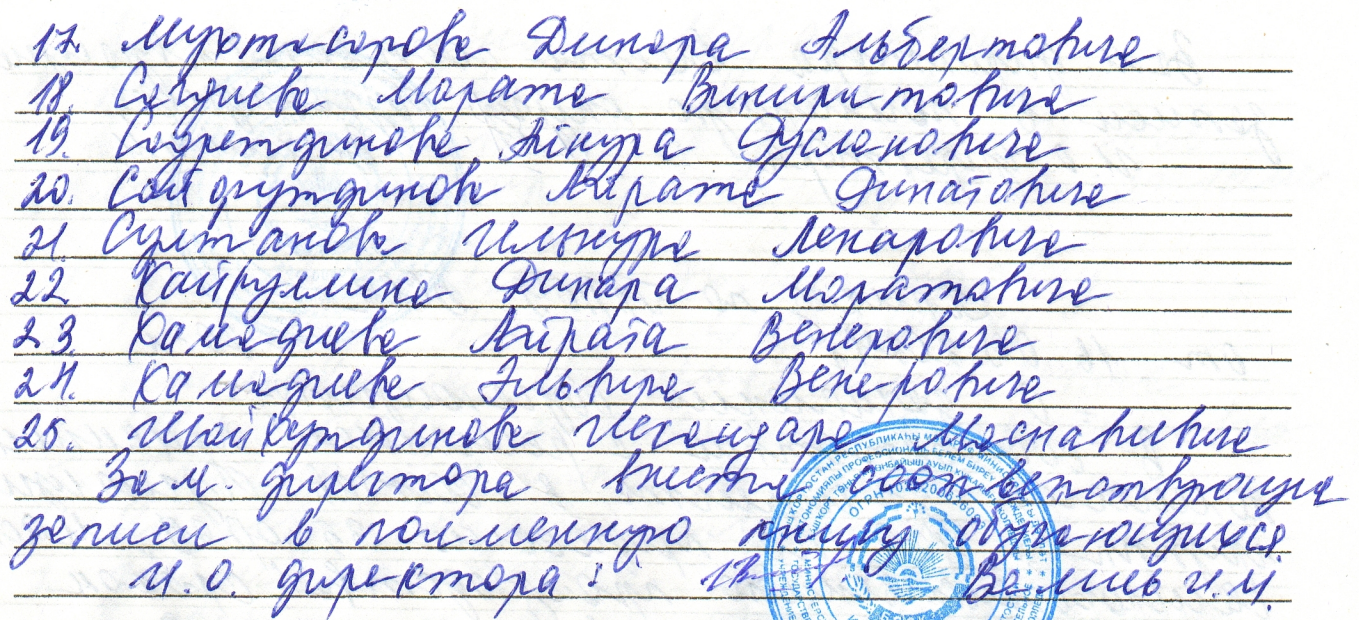 17. Муртасарова Динара Альбертовича
18. Сагдиева Марата Виниритовича
19. Садретдинова Айнура Руслановича
20. Сайфутдинова Айрата Динатовича
21. Султанова Ильнура Ленаровича
22 Хайруллина Динара Маратовича
23. Хамадиева Айрата Венеровича
24. Хамадиева Эльвира Венеровича
25. Шайхутдинова Искандара Маснавиевича
Зам. директора внести соответствующие
записи в поименную книгу обучающихся.
И.О. директора: И.М.